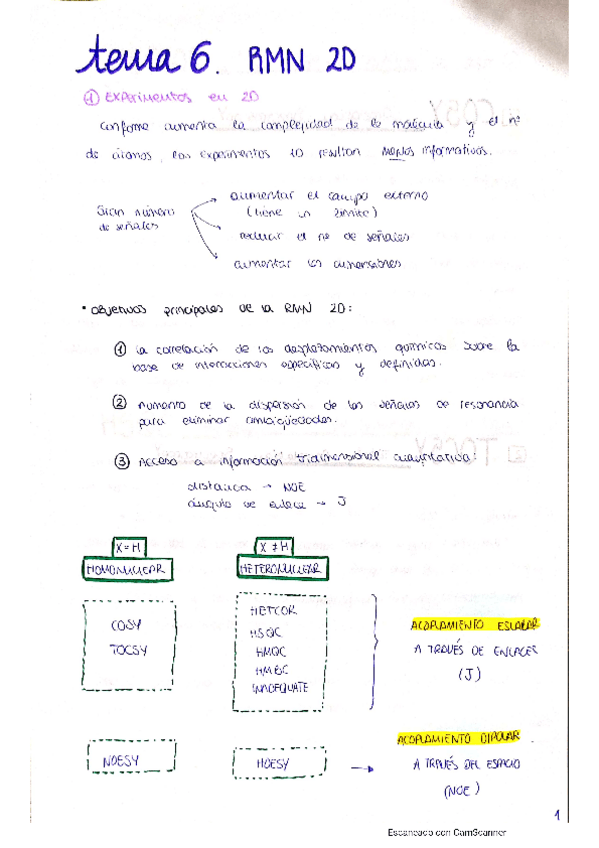 tema 6. RMN 2D
① EXPERIMENTOS en 2D
Conforme aumenta la complejidad de la molécula y el nº
de átomos, los experimentos 1D resultan menos informativos.
Gran número
de señales
aumentar el campo externo
(tiene un límite)
reducir el nº de señales
aumentar las dimensiones
• objetivos principales de la RMN 2D:
① la correlación de los desplazamientos químicos sobre la
base de interacciones específicas y definidas.
② Aumento de la dispersión de las señales de resonancia
para eliminar ambigüedades.
③ Acceso a información tridimensional cuantitativa:
distancia → NOE
ángulo de enlace → J
X = H
HOMONUCLEAR
X ≠ H
HETERONUCLEAR
COSY
TOCSY
HETCOR
HSQC
HMQC
HMBC
INADEQUATE
ACOPLAMIENTO ESCALAR
A TRAVÉS DE ENLACES
(J)
NOESY
HOESY
→
ACOPLAMIENTO DIPOLAR
A TRAVÉS DEL ESPACIO
(NOE)
1
Escaneado con CamScanner